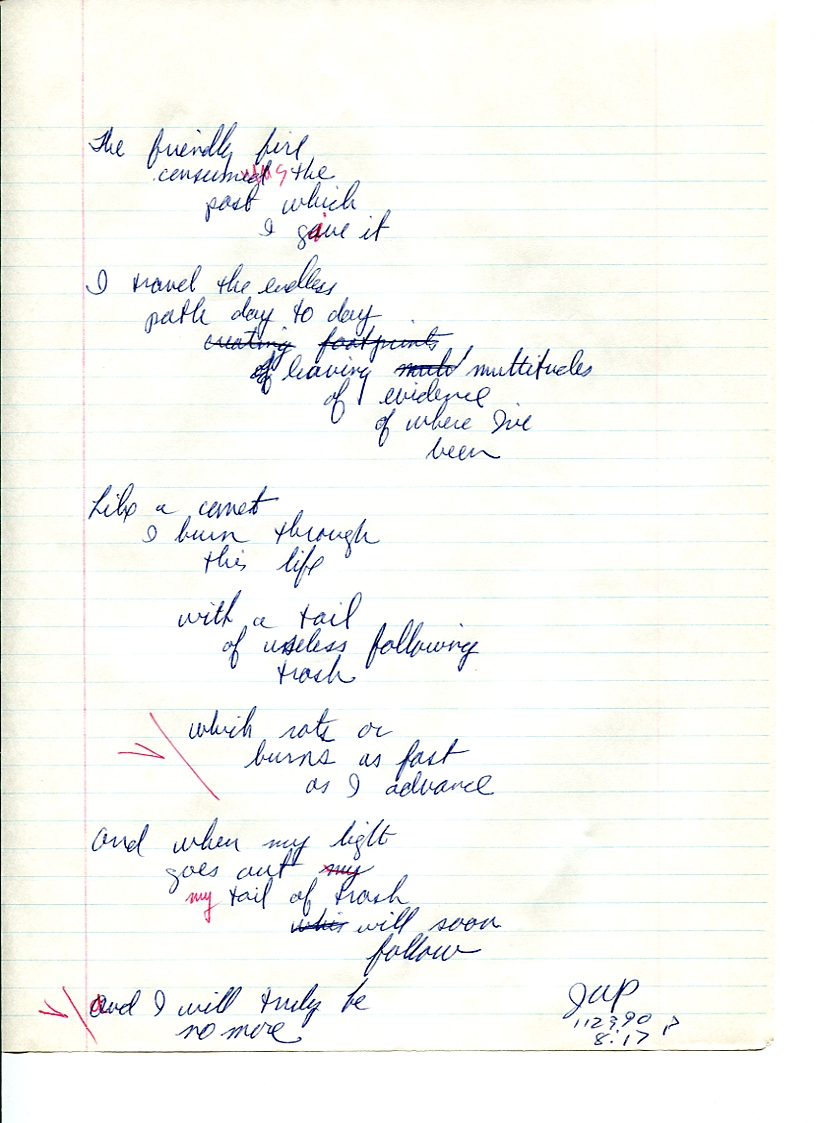 The friendly fire
consuming the
past which
I give it
I travel the endless
path day to day
creating footprints
of leaving mult multitudes
of evidence
of where I've
been
Like a comet
I burn through
this life
with a tail
of useless following
trash
which rots or
burns as fast
as I advance
And when my light
goes out my
my tail of trash
will soon
follow
and I will truly be
no more
JWP
112990 P
8:17